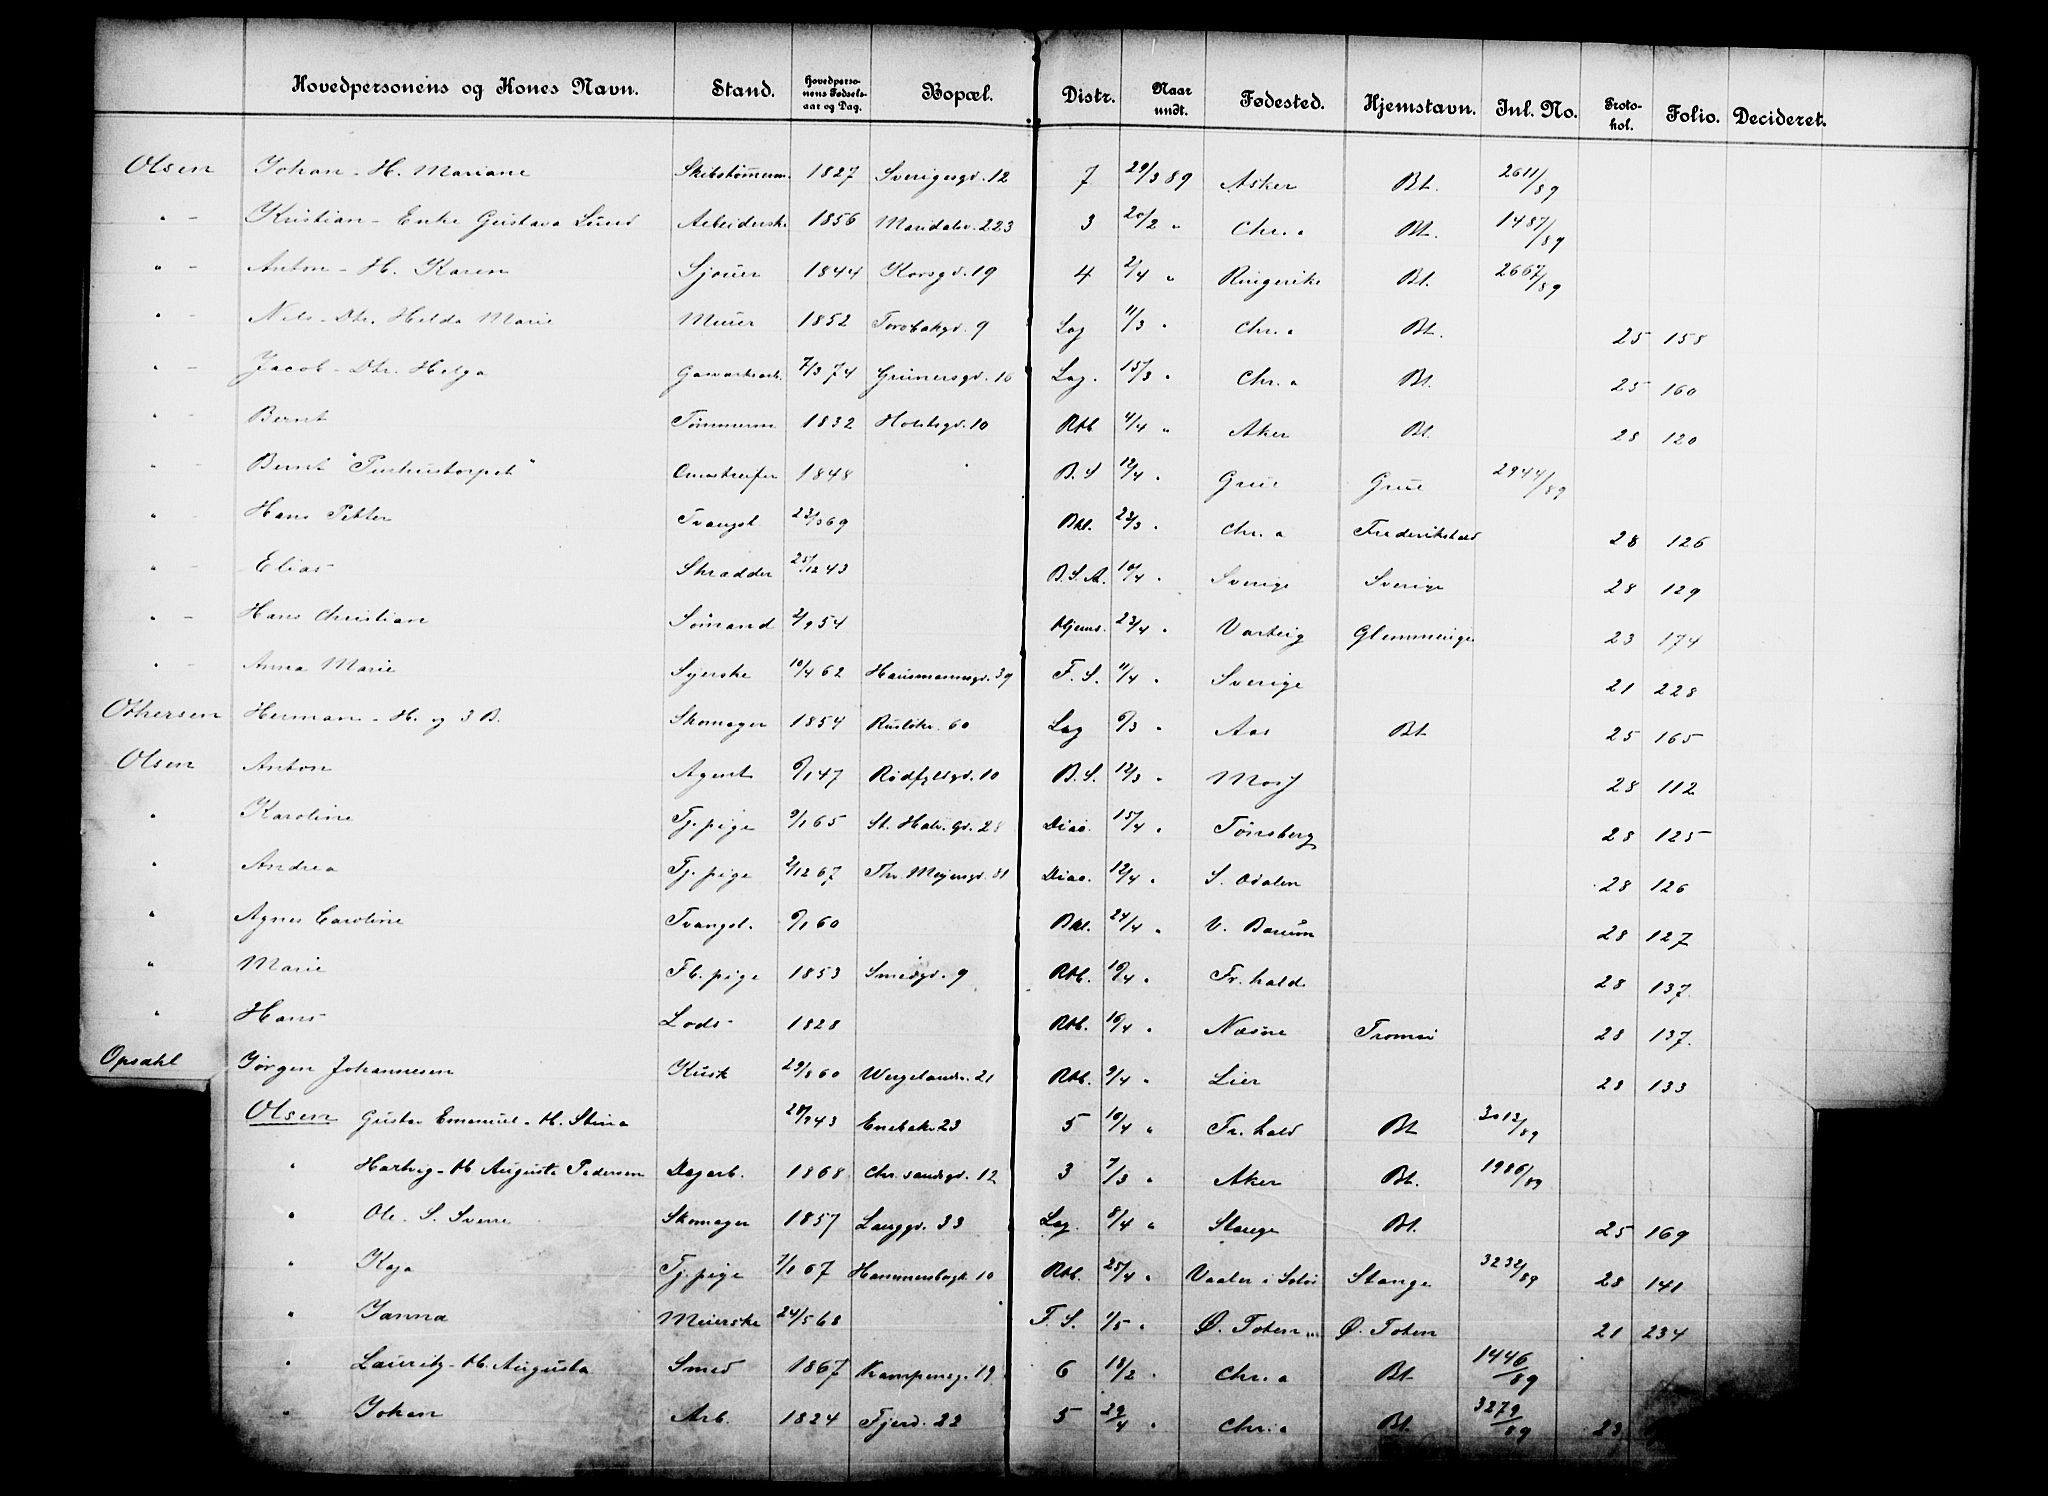 Hovedpersonens og Kones Navn. Stand. Hovedperso-nens Fødsels-aar og Dag. Bopæl. Distr. Naar undt. Fødested. Hjemstavn. Inl. No. Proto-kol. Folio. Decideret.
Olsen Johan - H. Mariane Skibstømerm. 1827 Sverigesgd. 12 7 29/3 89 Asker Bt. 2611/89
" - Kristian - Enke Gustava Lund Arbeiderske 1856 Maridalsv. 223 3 20/2 " Chr.a Bt. 1487/89
" - Anton - H. Karen Sjouer 1844 Korsgd. 19 4 2/4 " Ringerike Bt. 2667/89
" - Nils - Dtr. Helda Marie Murer 1852 Torvbakgd. 9 Lag 11/3 " Chr.a Bt. 25 158
" - Jacob - Dtr. Helga Garverarb. 7/3 74 Grünersgd. 16 Lag. 15/3 " Chr.a Bt. 25 160
" - Bernt Tømmerm 1832 Holstsgd. 10 Rtb 4/4 " Aker Bt. 28 120
" - Bernt Omstreifer 1848 B.S 12/4 " Grue Grue 2944/89
" - Hans Petter Tvangsl. 23/3 69 Bkl. 23/3 " Chr.a Frederikshald 28 126
" - Elias Skrædder 25/12 43 B.S.A. 10/4 " Sverige Sverige 28 129
" - Hans Christian Sømand 2/9 54 Hjems. 23/4 " Varteig Glemminge 23 174
" - Anna Marie Syerske 10/4 62 Hausmannsgd. 39 F.S. 11/4 " Sverige 21 228
Othersen Herman - H. og 3 B. Skomager 1854 60 Lag 6/3 " Aas Bt 25 165
Olsen Anton Agent 0/1 47 Rødfyldgd. 10 B.S. 12/3 " Moss 28 112
" Karoline Tj.pige 9/1 65 St. Halv. Gd. 28 Diac. 15/4 " Tønsberg 28 125
" Andrea Tj.pige 2/12 67 Thv. Meyersgd. 31 Diac. 12/4 " S. Odalen 28 126
" Agnes Caroline Tvangsl. 0/1 60 Bkl. 24/4 " V. Bærum 28 127
" Marie Fb.pige 1853 Smedgd. 9 Rtb. 10/4 " Fr.hald 28 137.
" Hans Lods 1828 Rtb. 10/4 " Næsne Tromsø 28 137.
Opsahl Jørgen Johannesen Kusk 29/8 60 Wergelandsv. 21 Rtb. 9/4 " Lier 28 133
Olsen Gustav Emanuel - H. Stina 43 Enebakv 23 5 10/4 " Fr.hald Bt 3012/89
" Hartvig - H Auguste Pedersen Dagarb. 1868 Chr.sandsgd. 12 3 7/3 " Aker Bt. 1986/89
" Ole - S. Sverre Skomager 1857 Langgd. 33 Lag. 8/4 " Stange Bt. 25 169
" Kaja Tj.pige 7/1 67 Hammersbogt. 10 Rtb. 25/4 " Vaaler i Solør Stange 3232/89 28 141
" Janna Meierske 24/5 68 F.S. 1/5 " Ø. Toten Ø. Toten 21 234
" Lauritz - H. Augusta Smed 1867 Kampensg. 19 6 18/2 " Chr.a Bt 1446/89
" Johan Arb. 1824 Fjerd. 22 5 29/4 " Chr.a Bt. 3279/89 23